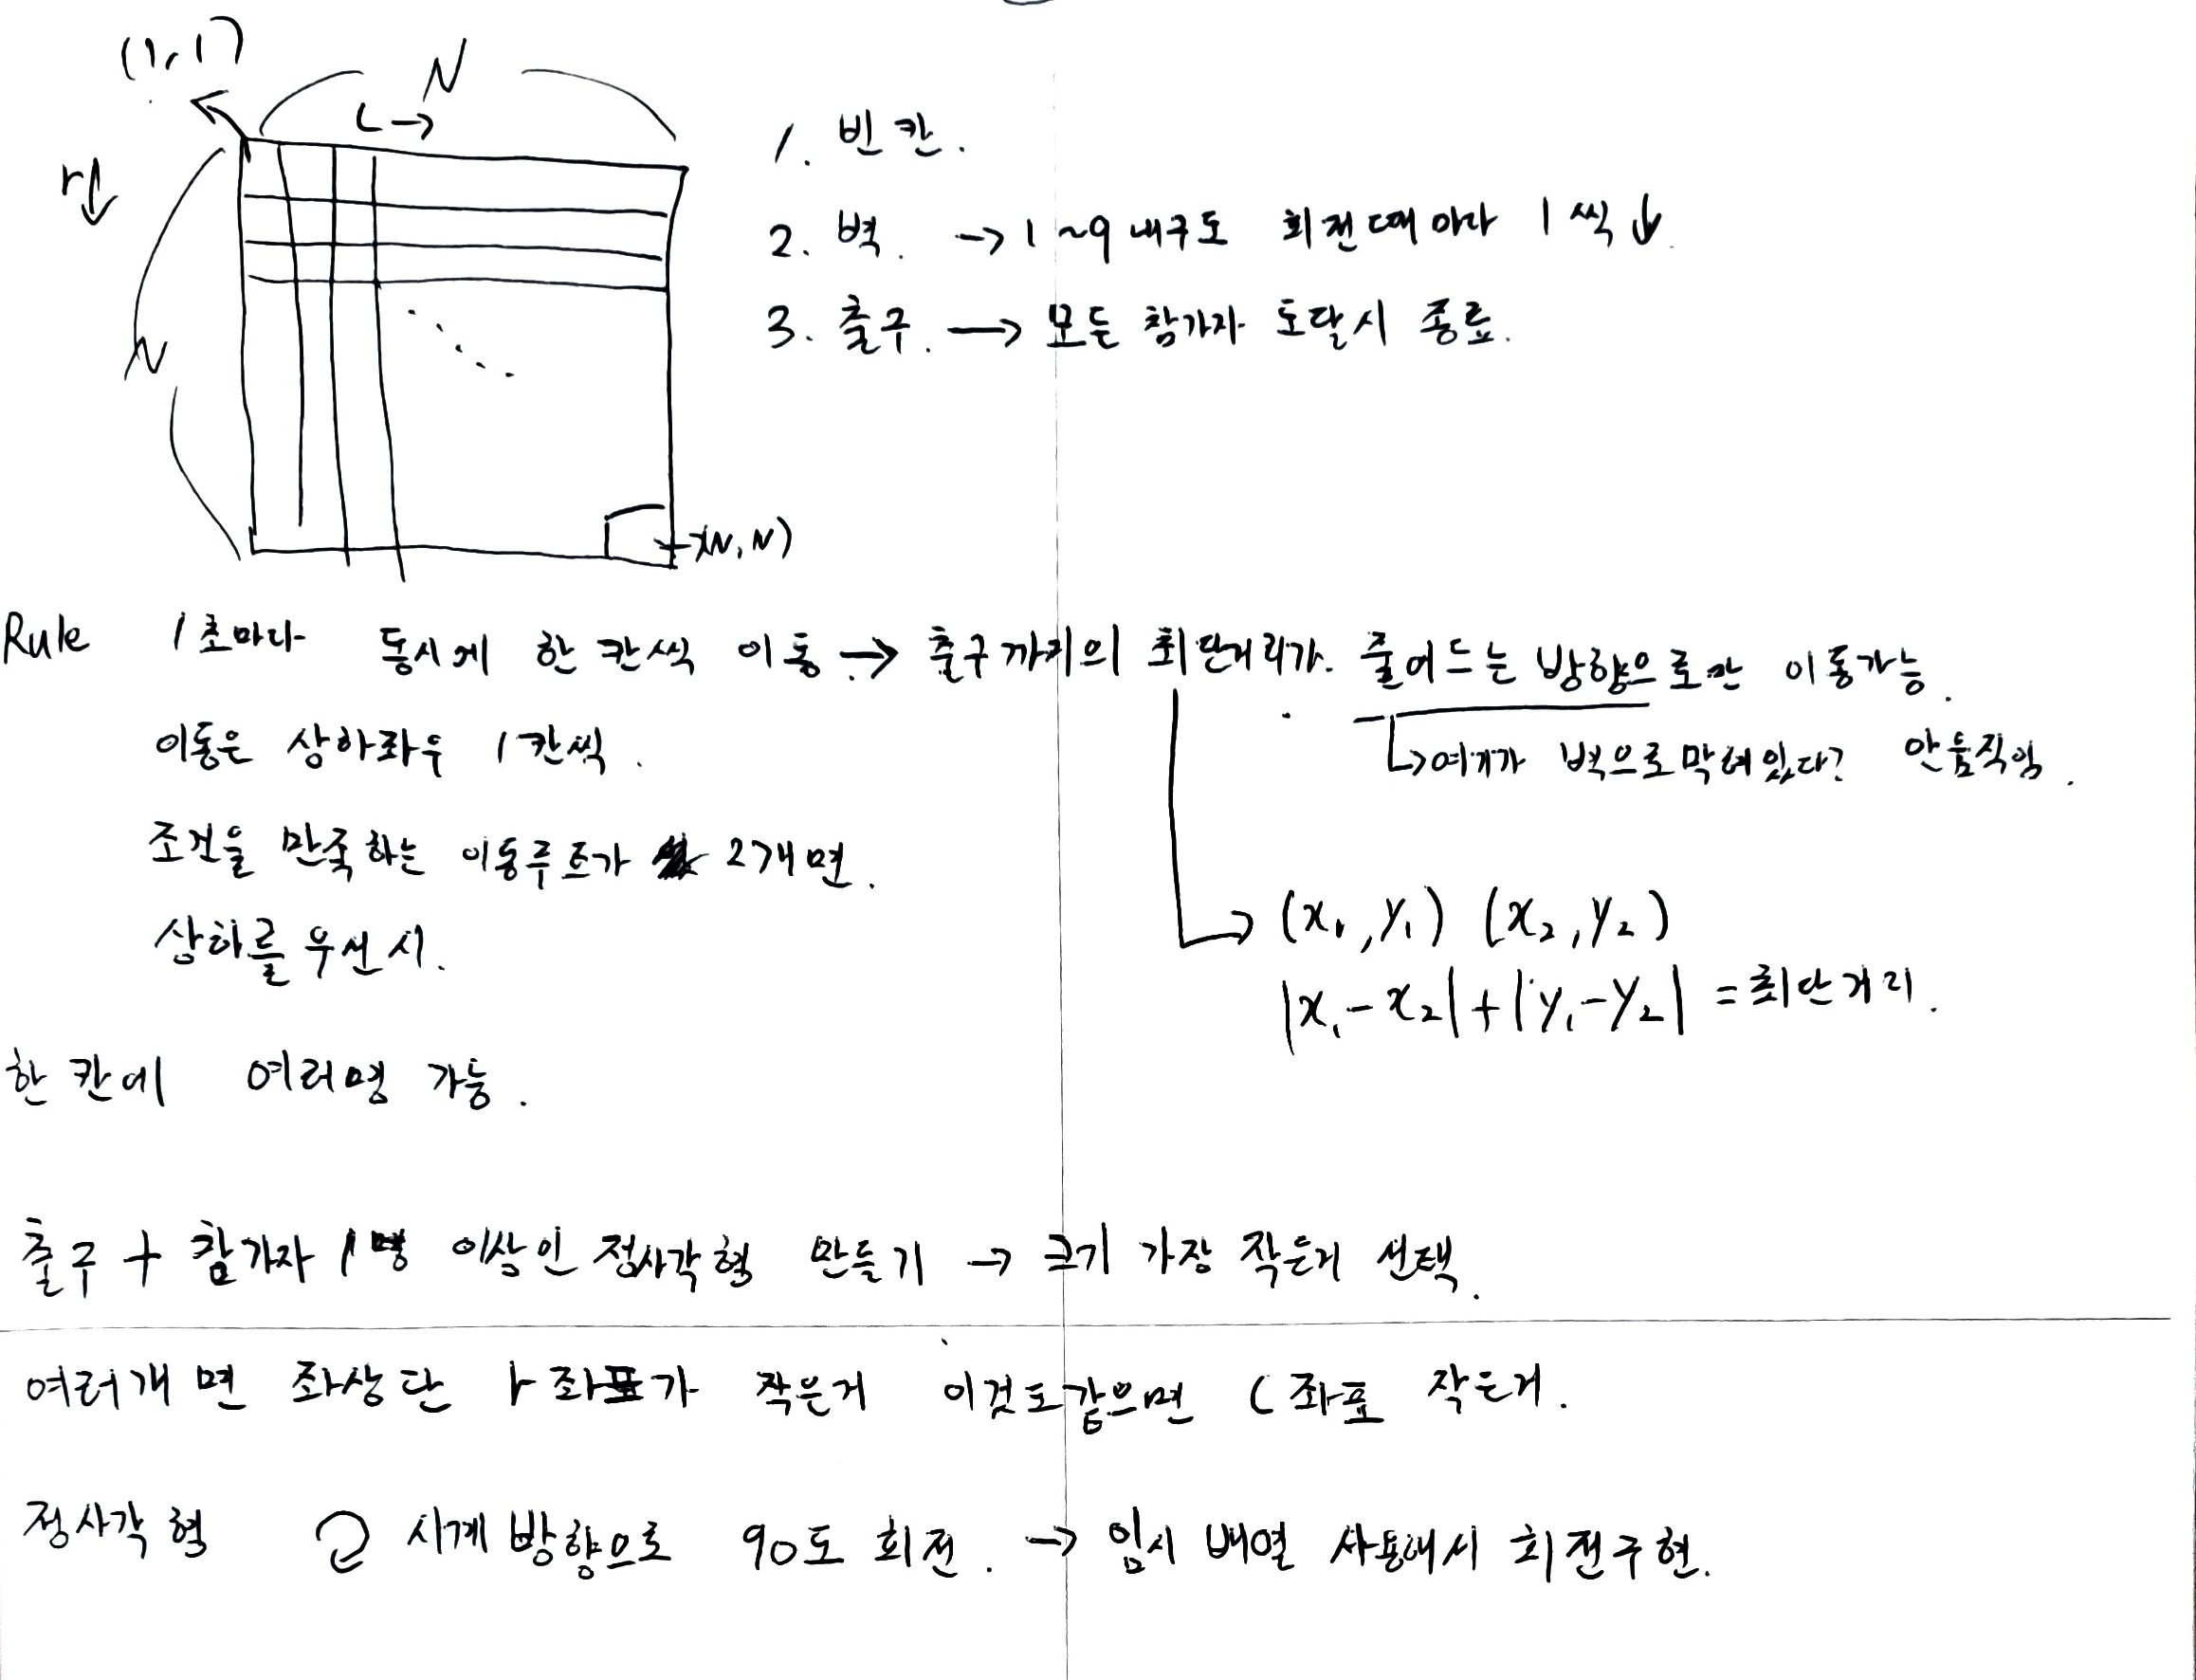 (1,1)
N
c →
r↓
N
(N,N)
1. 빈 칸.
2. 벽. → 1~9 내구도 회전때마다 1씩↓.
3. 출구. → 모든 참가자 도달시 종료.
Rule 1초마다 동시에 한 칸씩 이동 → 출구까지의 최단거리가. 줄어드는 방향으로만 이동가능.
이동은 상하좌우 1칸씩.
↳여기가 벽으로막혀있다? 안움직임.
조건을 만족하는 이동루트가 2개면.
상하를 우선시.
→ (x₁,y₁) (x₂,y₂)
|x₁-x₂|+|y₁-y₂| = 최단거리.
한 칸에 여러명 가능.
출구 + 참가자 1명 이상인 정사각형 만들기 → 크기 가장 작은거 선택.
여러개면 좌상단 r좌표가 작은거 이것도같으면 c좌표 작은거.
정사각형 시계방향으로 90도 회전. → 임시 배열 사용해서 회전구현.